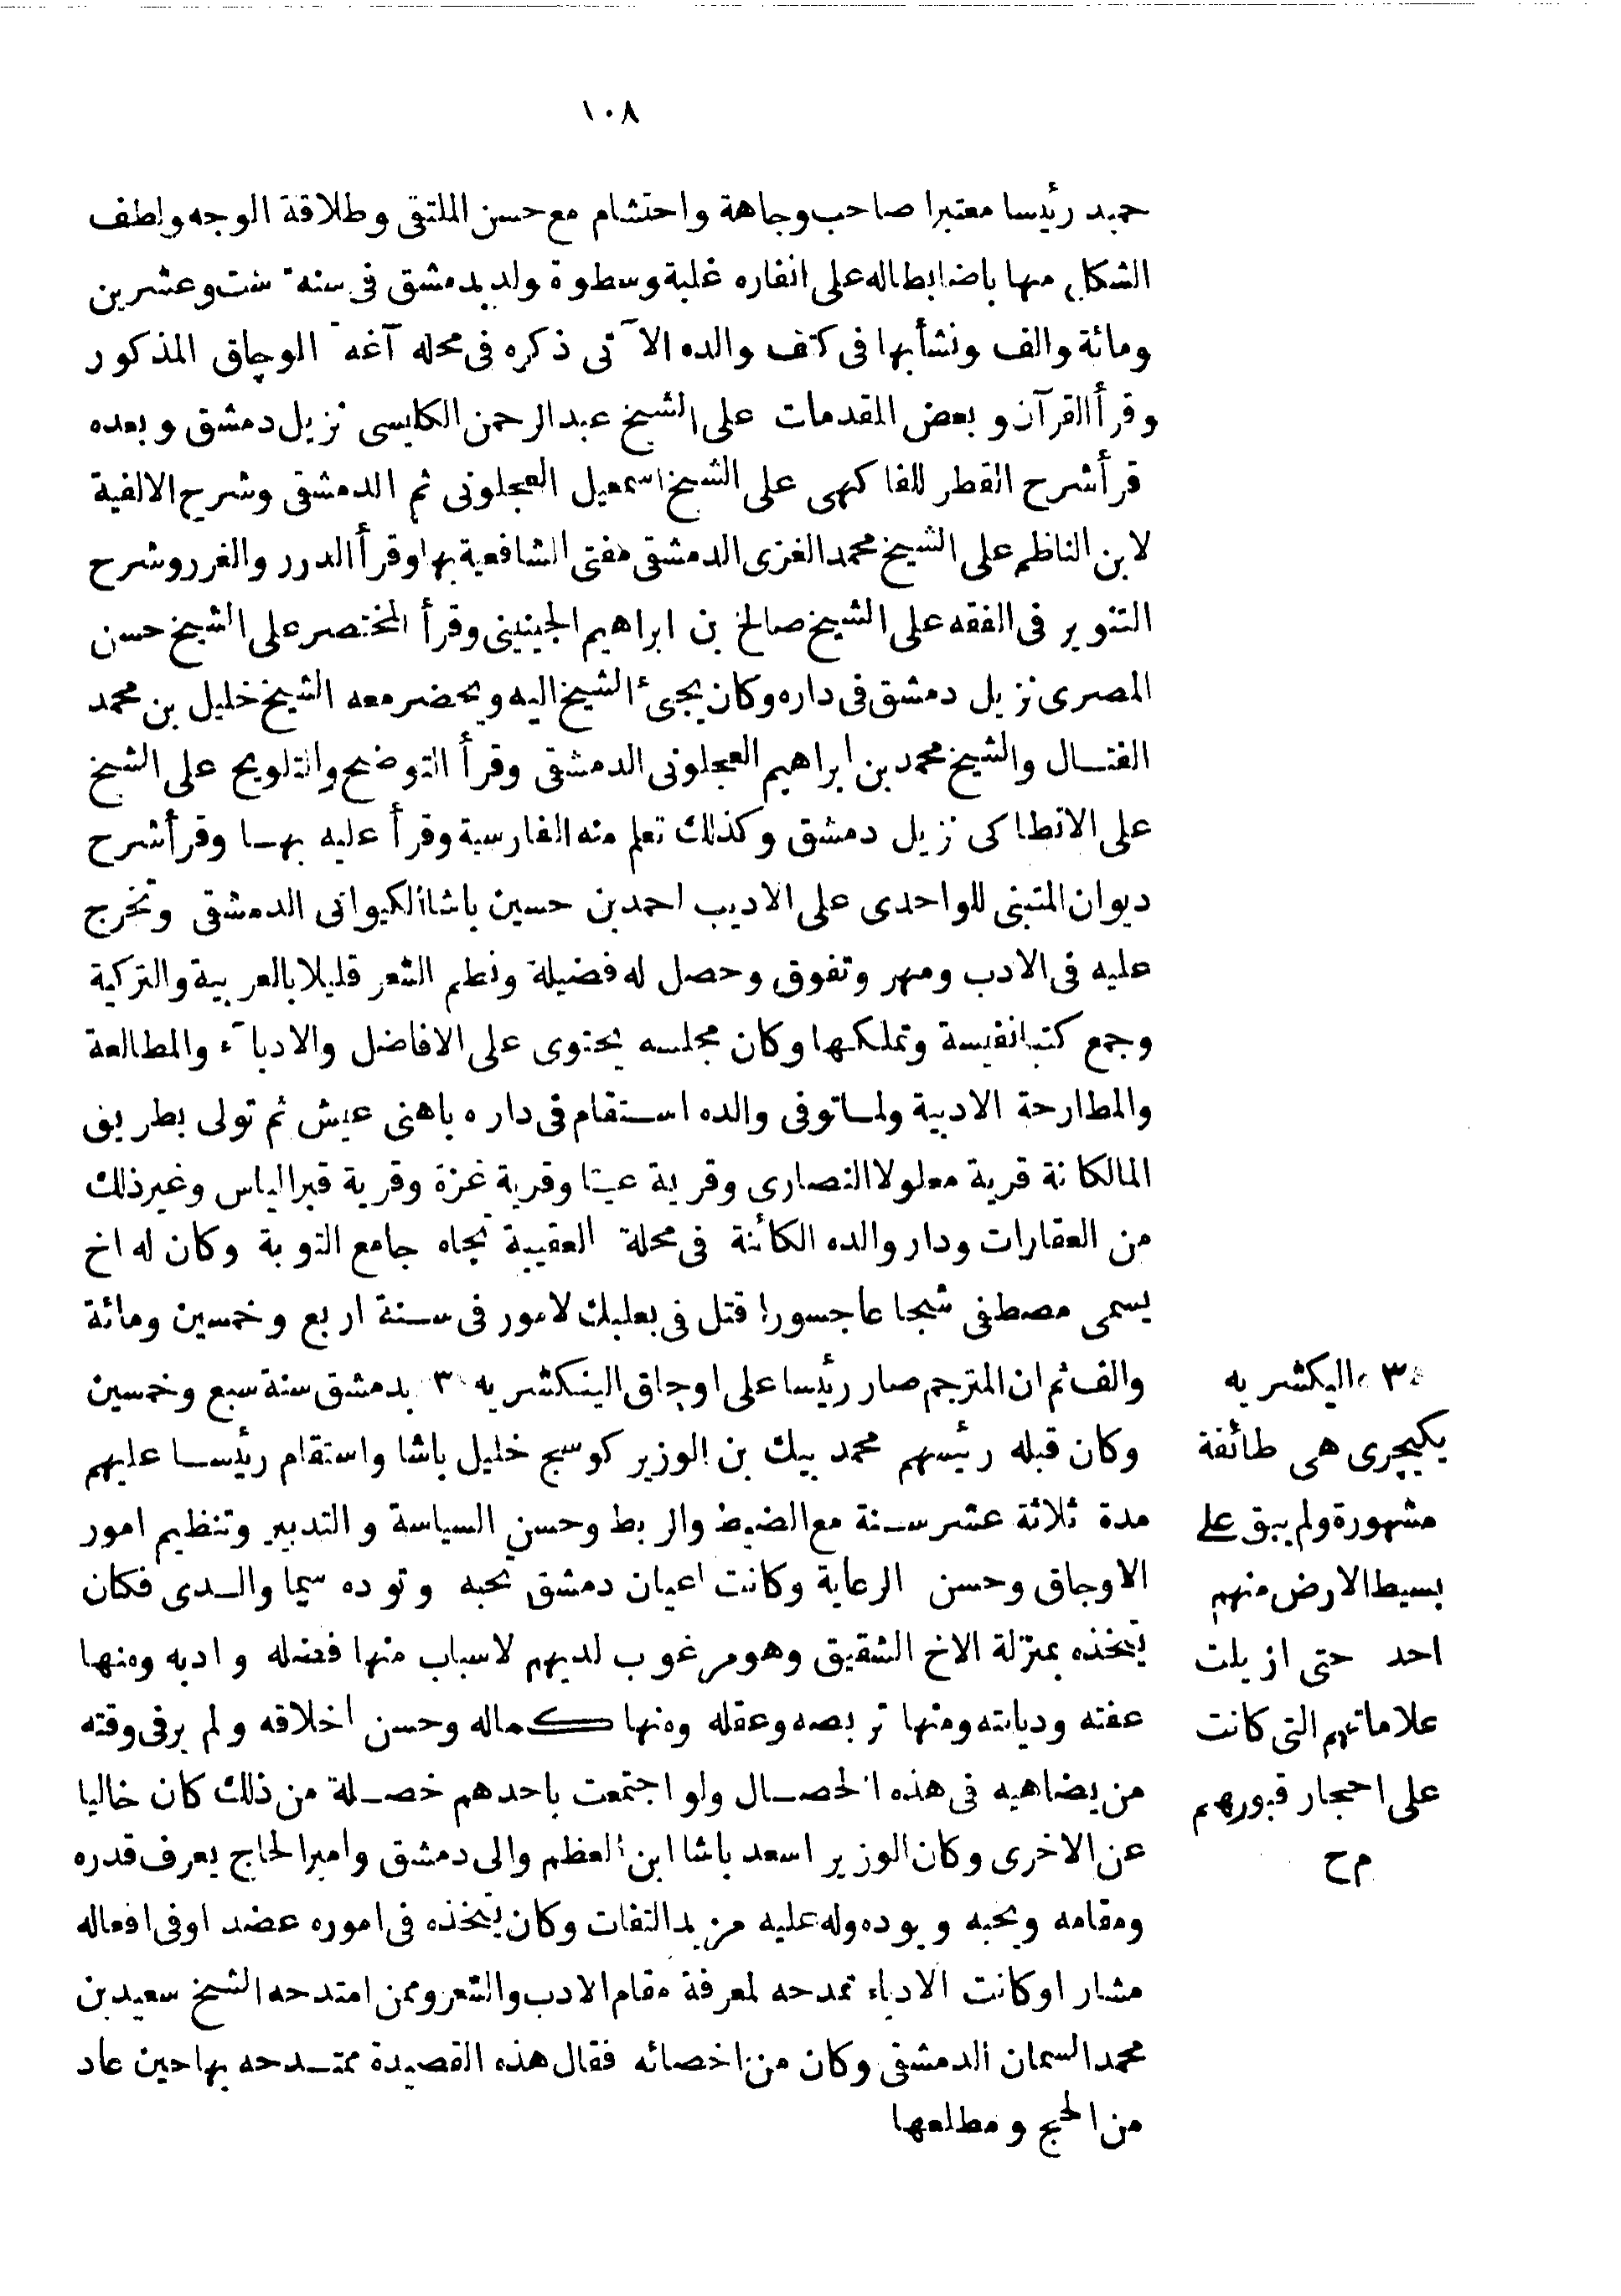 ١٠٨
حميد رئيسا معتبرا صاحب وجاهة واحتشام مع حسن الملتقى وطلاقة الوجه ولطف
الشكل مهابا ضابطاله على انفاره غلبة وسطوة ولد بدمشق فى سنة ست وعشرين
ومائة والف ونشأ بها فى كنف والده الآتى ذكره فى محله آغة الوجاق المذكور
وقرأ القرآن وبعض المقدمات على الشيخ عبد الرحمن الكابسى نزيل دمشق وبعده
قرأ شرح القطر للفاكهى على الشيخ اسمعيل العجلونى ثم الدمشقى وشرح الالفية
لابن الناظم على الشيخ محمد الغزى الدمشقى مفتى الشافعية بها وقرأ الدرر والغرر وشرح
التنوير فى الفقه على الشيخ صالح بن ابراهيم الجينينى وقرأ المختصر على الشيخ حسن
المصرى نزيل دمشق فى داره وكان يجئ الشيخ اليه ويحضر معه الشيخ خليل بن محمد
الفتــال والشيخ محمد بن ابراهيم العجلونى الدمشقى وقرأ التوضيح والتلويح على الشيخ
على الانطاكى نزيل دمشق وكذلك تعلم منه الفارسية وقرأ عليه بهـا وقرأ شرح
ديوان المتنبى للواحدى على الاديب احمد بن حسين باشا الكيوانى الدمشقى وتخرج
عليه فى الادب ومهر وتفوق وحصل له فضيلة ونظم الشعر قليلا بالعربية والتركية
وجمع كتبا نفيسة وتملكها وكان مجلسه يحتوى على الافاضل والادباء والمطالعة
والمطارحة الادبية ولمـا توفى والده اسـتقام فى داره باهنى عيش ثم تولى بطريق
المالكانة قرية معلولا النصارى وقرية عيتا وقرية غزة وقرية قبر الياس وغير ذلك
من العقارات ودار والده الكائنة فى محلة العقيبة تجاه جامع التوبة وكان له اخ
يسمى مصطفى شجاعا جسورا قتل فى بعلبك لامور فى سـنة اربع وخمسين ومائة
والف ثم ان المترجم صار رئيسا على اوجاق الينكشريه ٣ بدمشق سنة سبع وخمسين
وكان قبله رئيسهم محمد بيك بن الوزير كوسج خليل باشا واستقام رئيسـا عليهم
مدة ثلاثة عشر سـنة مع الضبط والربط وحسن السياسة والتدبير وتنظيم امور
الاوجاق وحسن الرعاية وكانت اعيان دمشق تحبه وتوده سيما والـدى فكان
يتخذه بمنزلة الاخ الشقيق وهو مرغوب لديهم لاسباب منها فضله وادبه ومنها
عفته وديانته ومنها تربصه وعقله ومنها كماله وحسن اخلاقه ولم ير فى وقته
من يضاهيه فى هذه الخصـال ولو اجتمعت باحدهم خصـلة من ذلك كان خاليا
عن الاخرى وكان الوزير اسعد باشا ابن العظم والى دمشق وامير الحاج يعرف قدره
ومقامه ويحبه ويوده وله عليه مزيد التفات وكان يتخذه فى اموره عضد اوفى افعاله
مشار اوكانت الادباء تمدحه لمعرفة مقام الادب والشعر وممن امتدحه الشيخ سعيد بن
محمد السمان الدمشقى وكان من اخصائه فقال هذه القصيدة ممتـدحه بها حين عاد
من الحج ومطلعها
«٣» اليكشريه
يكيچرى هى طائفة
مشهورة ولم يبق على
بسيط الارض منهم
احد حتى ازيلت
علاماتهم التى كانت
على احجار قبورهم
م ح